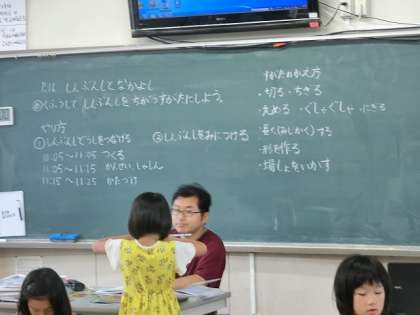 7/16 しんぶんしとなかよし
めくふうして しんぶんしをちがうすがたにしよう。
やり方
①しんぶんしどうしをつなげる
②しんぶんしをみにつける
11:05〜11:05 つくる
11:05〜11:15 かんせい、しゃしん
11:15〜11:25 かたづけ
すがたのかえ方
・切る・ちぎる
・丸める・ぐしゃぐしゃ・にぎる
・長く(ほしかく)する
・形を作る
・場しょをいかす